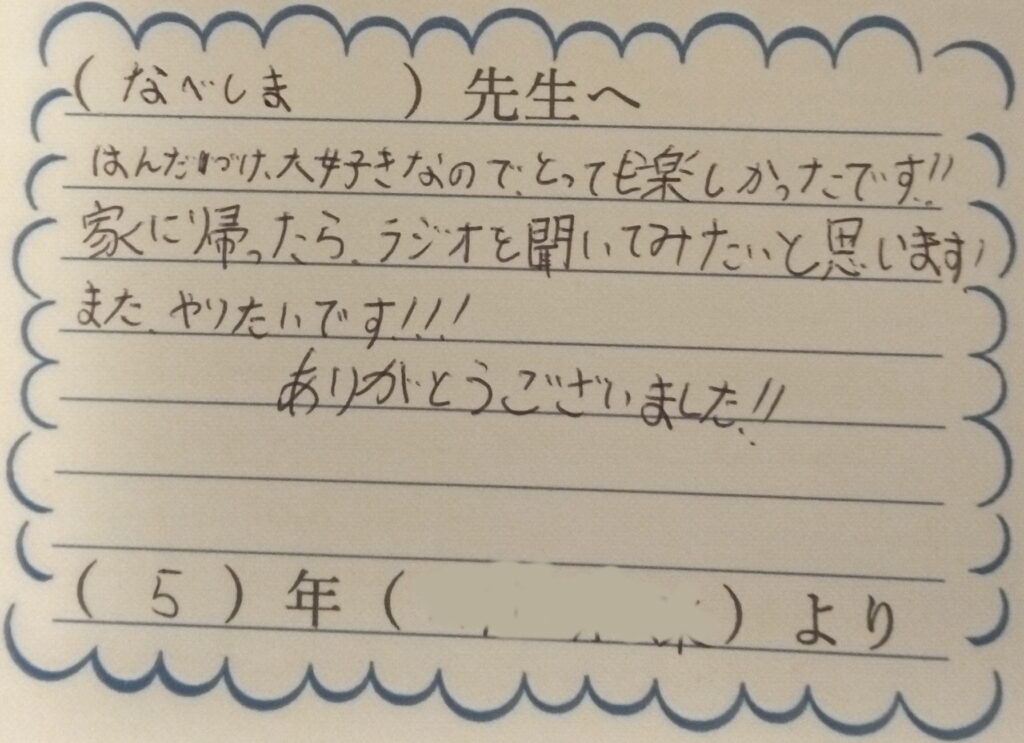 (なべしま)先生へ
はんだづけ、大好きなので、とっても楽しかったです!!
家に帰ったら、ラジオを聞いてみたいと思います!
また、やりたいです!!!
ありがとうございました!!
(5)年( )より